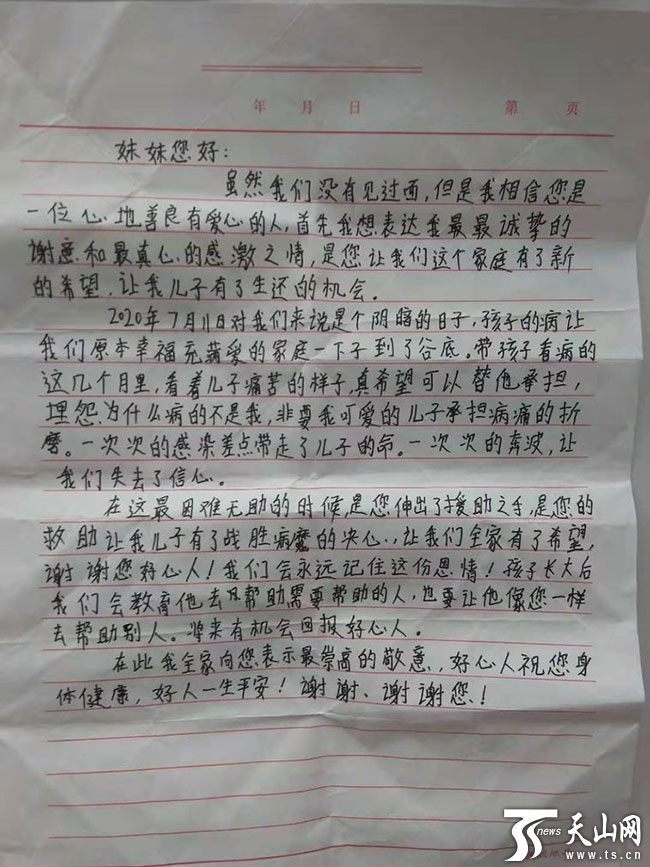 年 月 日 第 页
妹妹您好:
虽然我们没有见过面,但是我相信您是
一位心地善良有爱心的人,首先我想表达我最最诚挚的
谢意和最真心的感激之情,是您让我们这个家庭有了新
的希望,让我儿子有了生还的机会。
2020年7月11日对我们来说是个阴暗的日子,孩子的病让
我们原本幸福充满爱的家庭一下子到了谷底。带孩子看病的
这几个月里,看着儿子痛苦的样子,真希望可以替他承担,
埋怨为什么病的不是我,非要我可爱的儿子承担病痛的折
磨。一次次的感染差点带走了儿子的命。一次次的奔波,让
我们失去了信心。
在这最困难无助的时候,是您伸出了援助之手,是您的
救助让我儿子有了战胜病魔的决心,让我们全家有了希望,
谢谢您好心人!我们会永远记住这份恩情!孩子长大后
我们会教育他去帮助需要帮助的人,也要让他像您一样
去帮助别人。将来有机会回报好心人。
在此我全家向您表示最崇高的敬意,好心人祝您身
体健康,好人一生平安!谢谢、谢谢您!
TS news 天山网
www.ts.cn